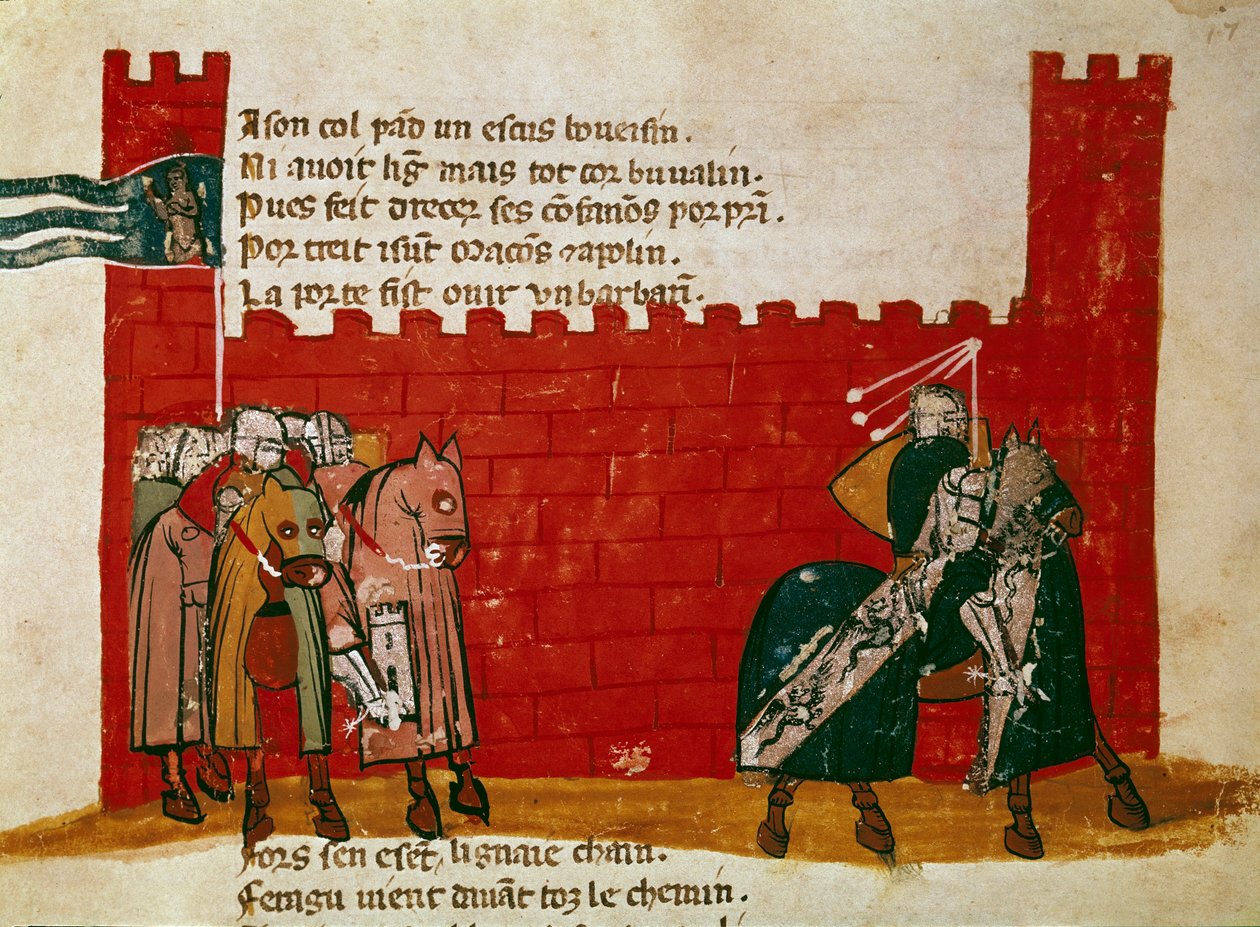 A son col pād un escus boueisin.
Ni auoit liḡ mais tot cor buualin.
Pues feit drecer ses cōfanōs por prī.
Por treit isūt macōs ⁊ apolin.
La porte fist ourir un barbarī.
Fors sen eset, lignaie chain.
Feragu uient dauāt toz le chemin.
17